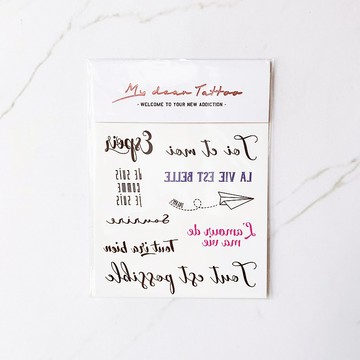 My dear Tattoo
- WELCOME TO YOUR NEW ADDICTION -
Espoir
Toi et moi
JE SUIS
COMME
JE SUIS
LA VIE EST BELLE
Sourire
L'amour de
ma vie
Tout ira bien
Tout est possible